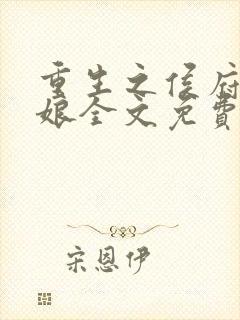 重生之侯府
娘全文免費
宋恩伊